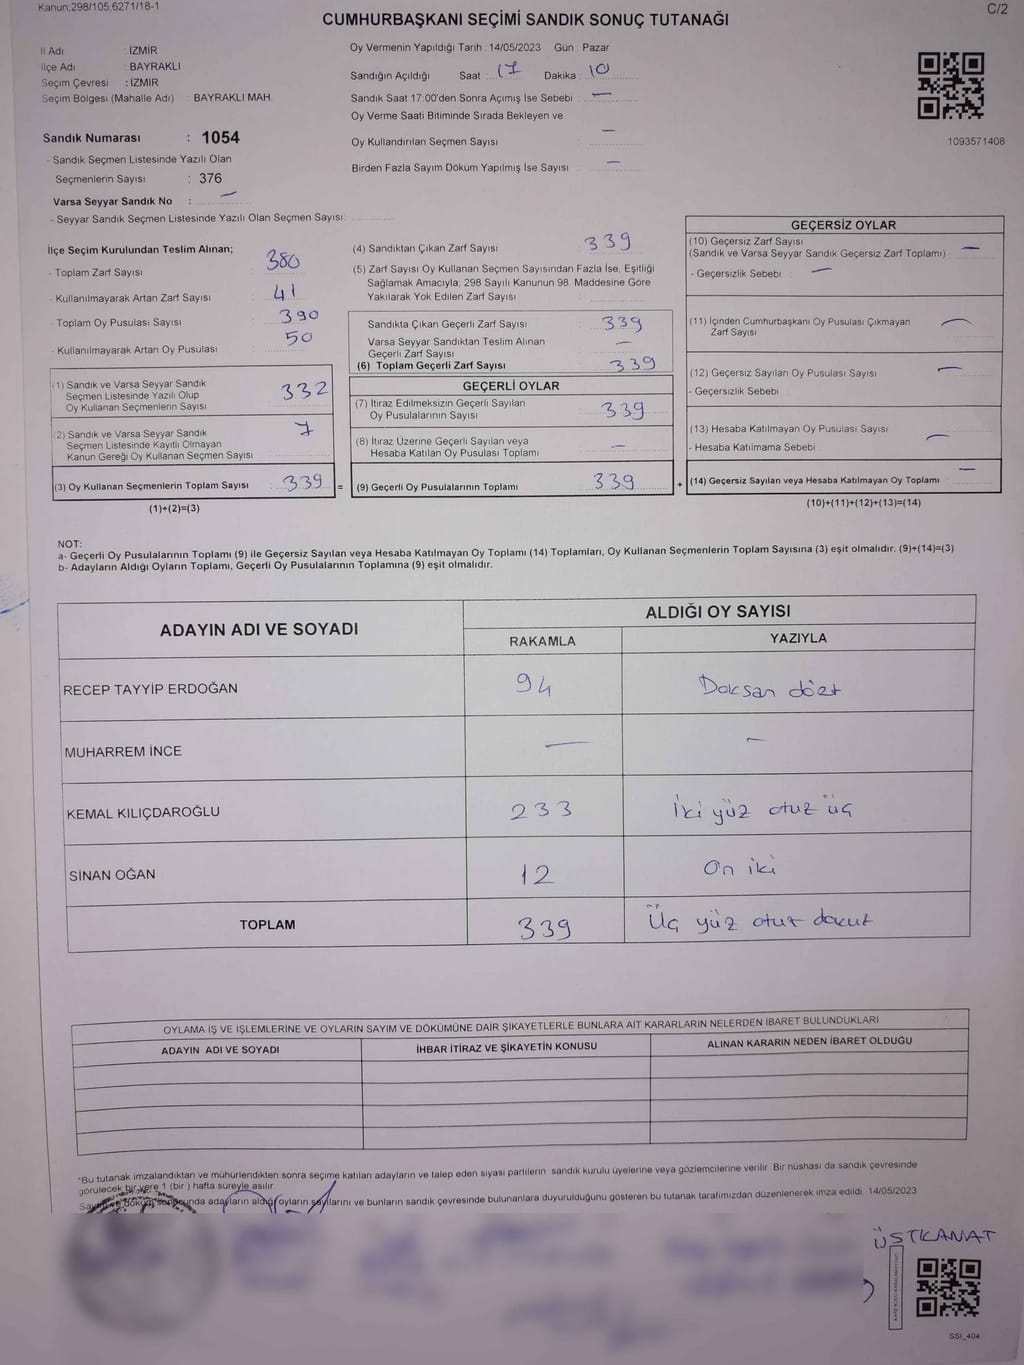 Kanun;298/105;6271/18-1
C/2
CUMHURBAŞKANI SEÇİMİ SANDIK SONUÇ TUTANAĞI
İl Adı : İZMİR
İlçe Adı : BAYRAKLI
Seçim Çevresi : İZMİR
Seçim Bölgesi (Mahalle Adı) : BAYRAKLI MAH.
Sandık Numarası : 1054
- Sandık Seçmen Listesinde Yazılı Olan
Seçmenlerin Sayısı : 376
Varsa Seyyar Sandık No : —
- Seyyar Sandık Seçmen Listesinde Yazılı Olan Seçmen Sayısı:
Oy Vermenin Yapıldığı Tarih : 14/05/2023 Gün : Pazar
Sandığın Açıldığı Saat : 17 Dakika : 10
Sandık Saat 17:00'den Sonra Açımış İse Sebebi : —
Oy Verme Saati Bitiminde Sırada Bekleyen ve
Oy Kullandırılan Seçmen Sayısı : —
Birden Fazla Sayım Döküm Yapılmış İse Sayısı : —
1093571408
İlçe Seçim Kurulundan Teslim Alınan;
- Toplam Zarf Sayısı : 380
- Kullanılmayarak Artan Zarf Sayısı : 41
- Toplam Oy Pusulası Sayısı : 390
- Kullanılmayarak Artan Oy Pusulası : 50
(1) Sandık ve Varsa Seyyar Sandık
Seçmen Listesinde Yazılı Olup
Oy Kullanan Seçmenlerin Sayısı : 332
(2) Sandık ve Varsa Seyyar Sandık
Seçmen Listesinde Kayıtlı Olmayan
Kanun Gereği Oy Kullanan Seçmen Sayısı : 7
(3) Oy Kullanan Seçmenlerin Toplam Sayısı : 339 =
(1)+(2)=(3)
(4) Sandıktan Çıkan Zarf Sayısı : 339
(5) Zarf Sayısı Oy Kullanan Seçmen Sayısından Fazla İse, Eşitliği
Sağlamak Amacıyla; 298 Sayılı Kanunun 98. Maddesine Göre
Yakılarak Yok Edilen Zarf Sayısı :
Sandıkta Çıkan Geçerli Zarf Sayısı : 339
Varsa Seyyar Sandıktan Teslim Alınan
Geçerli Zarf Sayısı : —
(6) Toplam Geçerli Zarf Sayısı : 339
GEÇERLİ OYLAR
(7) İtiraz Edilmeksizin Geçerli Sayılan
Oy Pusulalarının Sayısı : 339
(8) İtiraz Üzerine Geçerli Sayılan veya
Hesaba Katılan Oy Pusulası Toplamı : —
(9) Geçerli Oy Pusulalarının Toplamı : 339 +
GEÇERSİZ OYLAR
(10) Geçersiz Zarf Sayısı
(Sandık ve Varsa Seyyar Sandık Geçersiz Zarf Toplamı) : —
- Geçersizlik Sebebi : —
(11) İçinden Cumhurbaşkanı Oy Pusulası Çıkmayan
Zarf Sayısı : —
(12) Geçersiz Sayılan Oy Pusulası Sayısı : —
- Geçersizlik Sebebi :
(13) Hesaba Katılmayan Oy Pusulası Sayısı : —
- Hesaba Katılmama Sebebi :
(14) Geçersiz Sayılan veya Hesaba Katılmayan Oy Toplamı : —
(10)+(11)+(12)+(13)=(14)
NOT:
a- Geçerli Oy Pusulalarının Toplamı (9) ile Geçersiz Sayılan veya Hesaba Katılmayan Oy Toplamı (14) Toplamları, Oy Kullanan Seçmenlerin Toplam Sayısına (3) eşit olmalıdır. (9)+(14)=(3)
b- Adayların Aldığı Oyların Toplamı, Geçerli Oy Pusulalarının Toplamına (9) eşit olmalıdır.
ADAYIN ADI VE SOYADI
ALDIĞI OY SAYISI
RAKAMLA YAZIYLA
RECEP TAYYİP ERDOĞAN 94 Doksan dört
MUHARREM İNCE — —
KEMAL KILIÇDAROĞLU 233 İki yüz otuz üç
SİNAN OĞAN 12 On iki
TOPLAM 339 Üç yüz otuz dokuz
OYLAMA İŞ VE İŞLEMLERİNE VE OYLARIN SAYIM VE DÖKÜMÜNE DAİR ŞİKAYETLERLE BUNLARA AİT KARARLARIN NELERDEN İBARET BULUNDUKLARI
ADAYIN ADI VE SOYADI İHBAR İTİRAZ VE ŞİKAYETİN KONUSU ALINAN KARARIN NEDEN İBARET OLDUĞU
*Bu tutanak imzalandıktan ve mühürlendikten sonra seçime katılan adayların ve talep eden siyasi partilerin sandık kurulu üyelerine veya gözlemcilerine verilir. Bir nüshası da sandık çevresinde
görülecek bir yere 1 (bir ) hafta süreyle asılır.
Sayım ve döküm sonucunda adayların aldığı oyların sayılarını ve bunların sandık çevresinde bulunanlara duyurulduğunu gösteren bu tutanak tarafımızdan düzenlenerek imza edildi. 14/05/2023
ÜSTKANAT
SSI_404